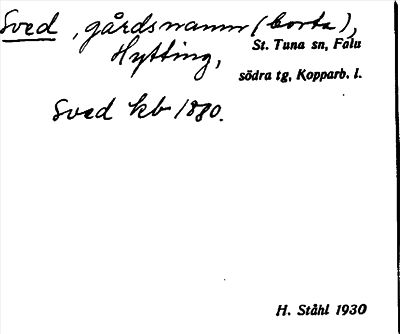 Sved, gårdsnamn (borta),
Hytting, St. Tuna sn, Falu
södra tg, Kopparb. l.
Sved kb 1880.
H. Ståhl 1930